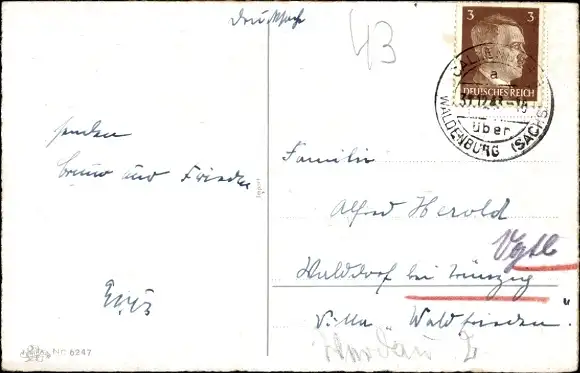 Drucksache
43
3 3
DEUTSCHES REICH
31.12.43-18
a
über
WALDENBURG (SACHS)
senden
Bruno und Frieda
Familie
Alfred Herold
Vgtl
Walddorf bei
Villa „Waldfrieden"
Nr. 6247